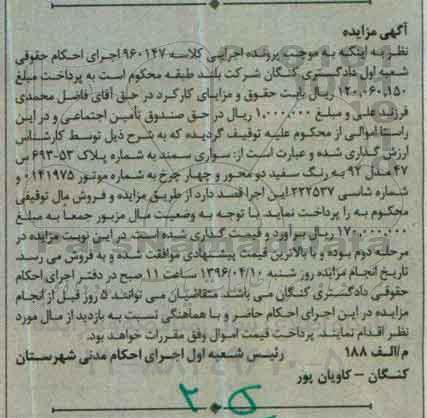 آگهی مزایده
نظر به اینکه به موجب پرونده اجرایی کلاسه ۹۶۰۱۴۷ اجرای احکام حقوقی
شعبه اول دادگستری کنگان شرکت بلند طبقه محکوم است به پرداخت مبلغ
۱۲۰,۰۶۰,۱۵۰ ریال بابت حقوق و مزایای کارگرد در حق آقای فاضل محمدی
فرزند علی و مبلغ ۱,۰۰۰,۰۰۰ ریال در حق صندوق تأمین اجتماعی و در این
راستا اموالی از محکوم علیه توقیف گردیده که به شرح ذیل توسط کارشناس
ارزش گذاری شده و عبارت است از: سواری سمند به شماره پلاک ۵۳-۶۹۳ س
۴۷ مدل ۹۲ به رنگ سفید دو محور و چهار چرخ به شماره موتور ۰۱۴۱۹۷۵ و
شماره شاسی ۲۲۲۵۳۷ این اجرا قصد دارد از طریق مزایده و فروش مال توقیفی
محکوم به را پرداخت نماید. با توجه به وضعیت مال مزبور جمعا به مبلغ
۱۷۰,۰۰۰,۰۰۰ ریال برآورد و قیمت گذاری شده است. در این نوبت مزایده در
مرحله دوم بوده و با بالاترین قیمت پیشنهادی موافقت شده و به فروش می رسد.
تاریخ انجام مزایده روز شنبه ۱۳۹۶/۰۴/۱۰ ساعت ۱۱ صبح در دفتر اجرای احکام
حقوقی دادگستری کنگان می باشد. متقاضیان می توانند ۵ روز قبل از انجام
مزایده در این اجرای احکام حاضر و با هماهنگی نسبت به بازدید از مال مورد
نظر اقدام نمایند. پرداخت قیمت اموال وفق مقررات خواهد بود.
م/الف ۱۸۸ رئیس شعبه اول اجرای احکام مدنی شهرستان
کنگان - کاویان پور